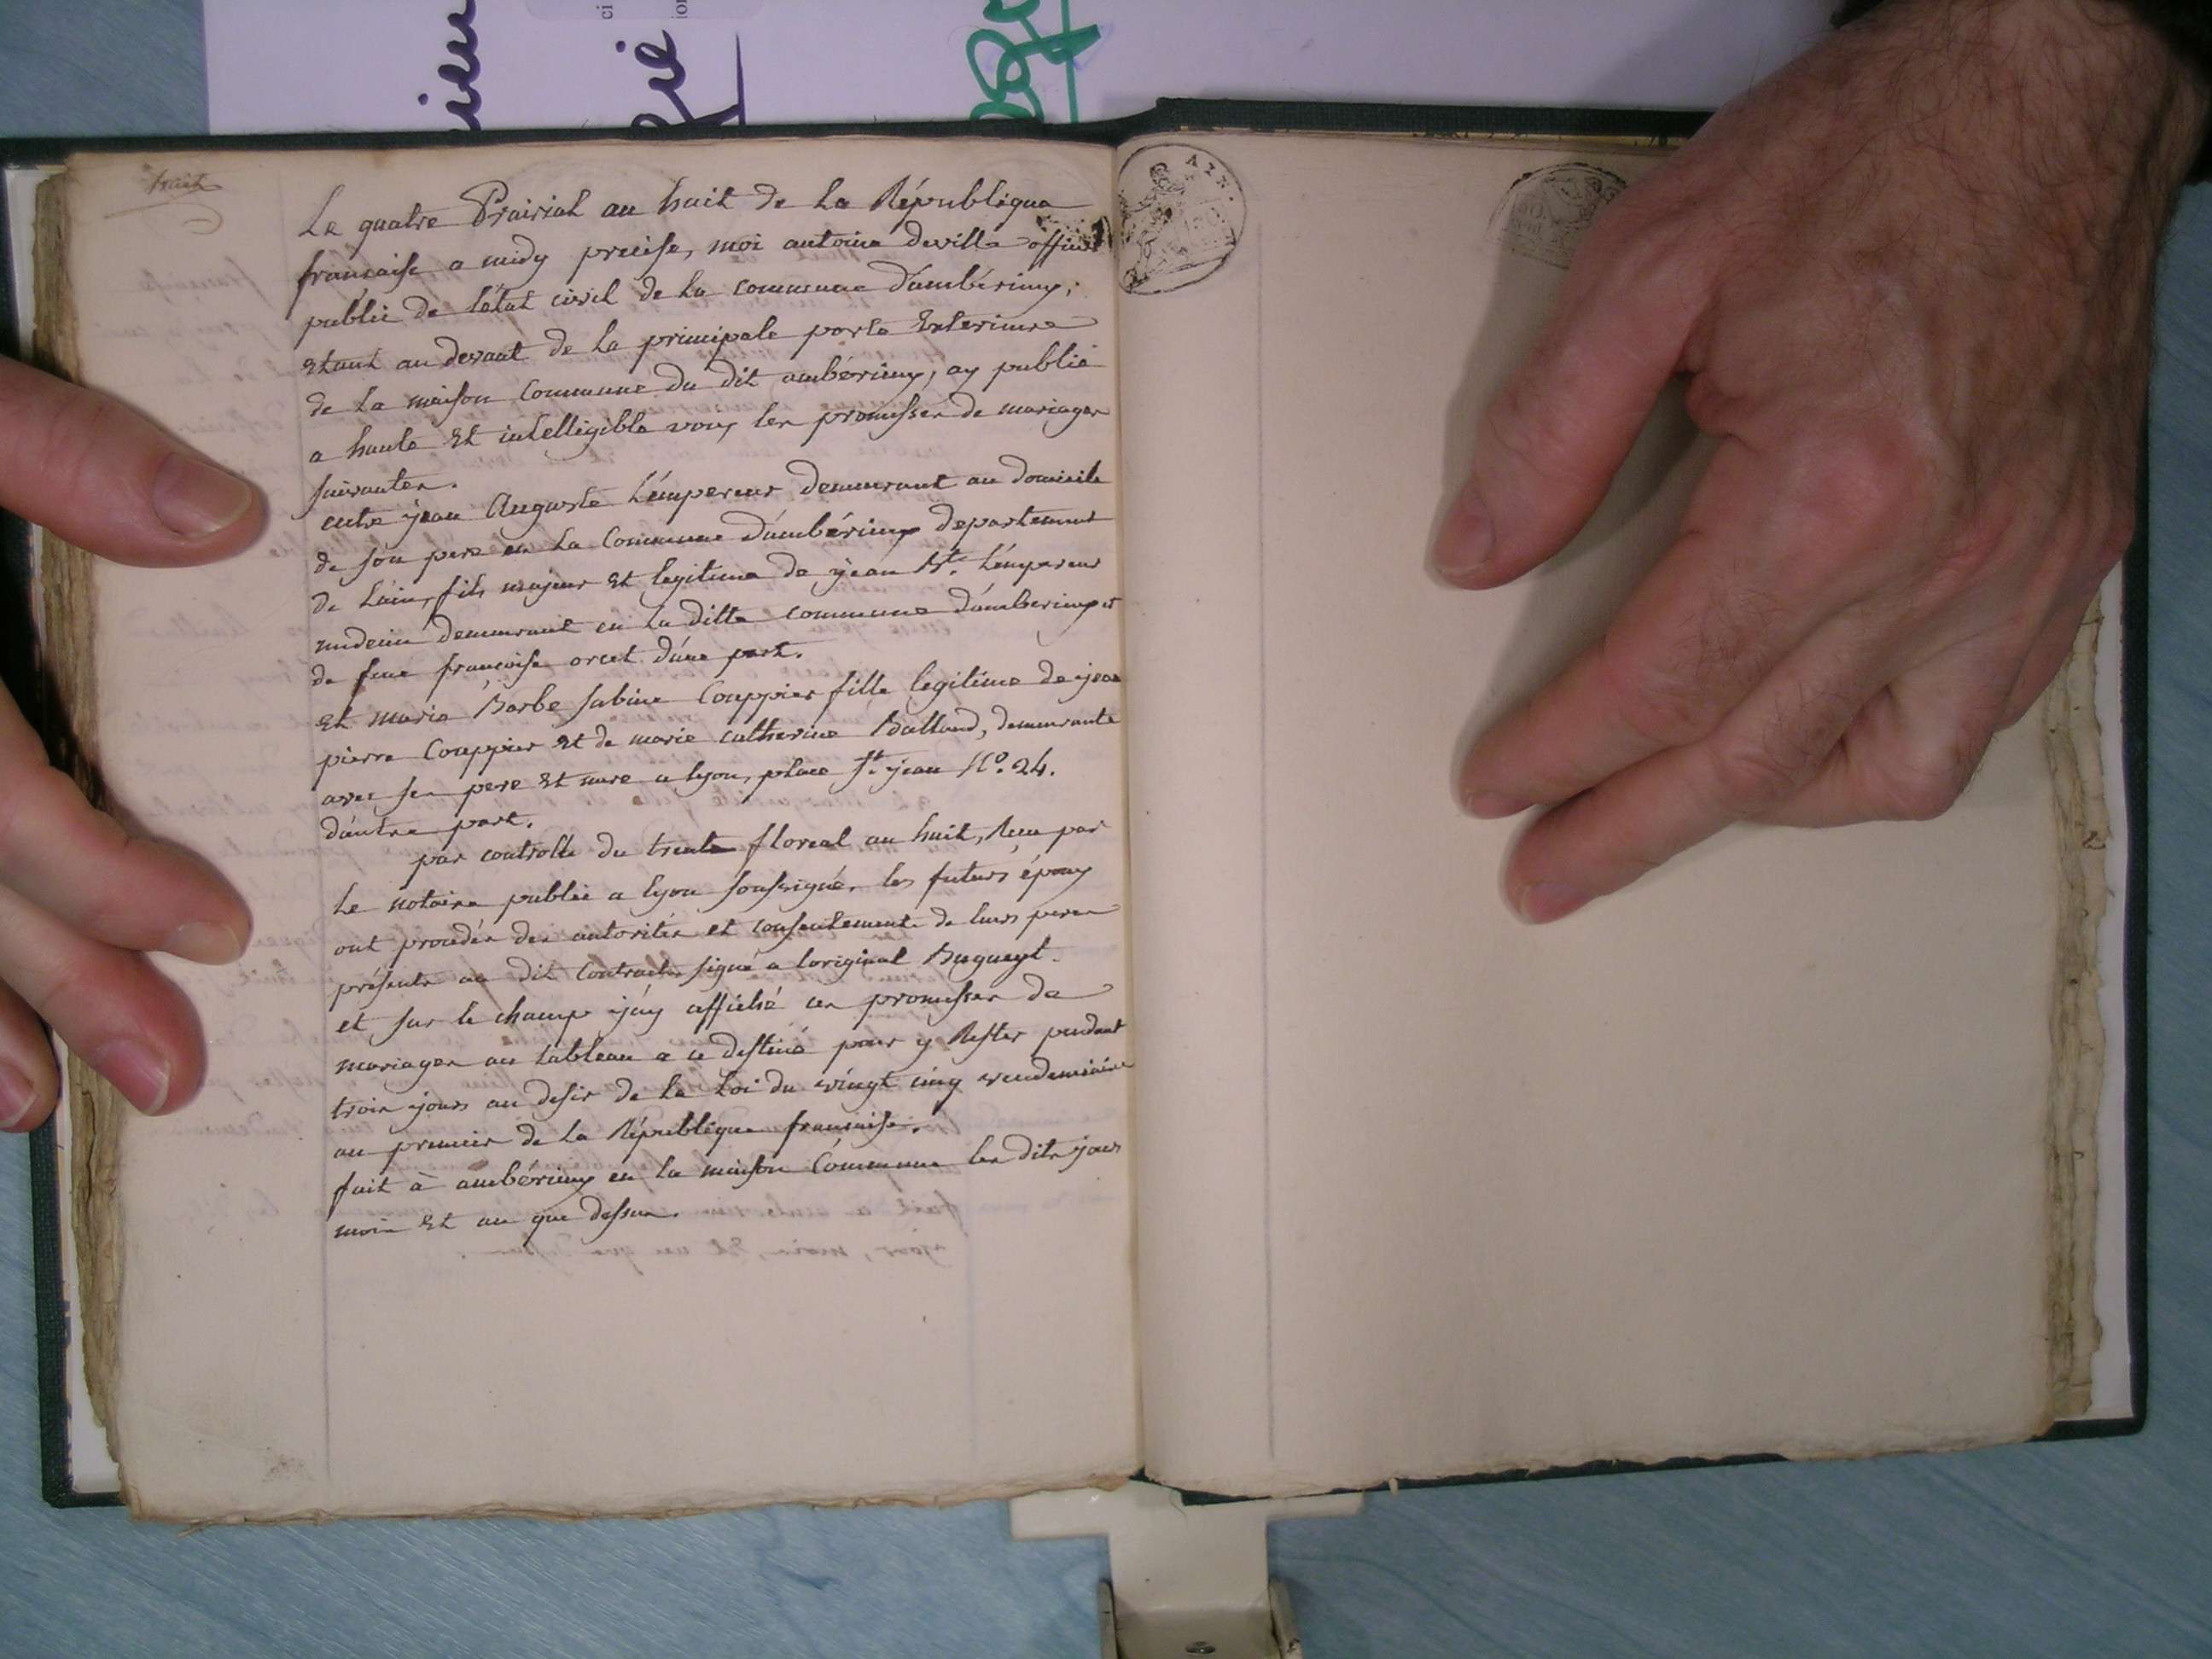 huit
Le quatre Prairial an huit de La République
francaise a midy precise, moi antoine deville officier
public de l'état civil de La commune d'ambérieux,
Etant au devant de La principale porte Exterieure
de La maison Commune du dit ambérieux, ay publié
a haute Et intelligible voix les promesses de mariages
suivantes.
entre jean Auguste L'émpereur demeurant au domicile
de son pere en La Commune d'ambérieux departement
de L'ain, fils majeur Et legitime de jean Bte. L'émpereur
medecin demeurant en La ditte commune d'amberieux et
de feue francoise orcet d'une part.
Et marie Barbe sabine Couppier fille legitime de jean
pierre Couppier Et de marie catherine Balland, demeurante
avec ses pere Et mere a lyon, place St. jean No. 24.
d'autre part.
par controlle du trente floreal an huit, Recu par
Le notaire public a lyon soussigné, les futurs époux
ont procédés des autorités et consentements de leurs peres
présents au dit Contract, signé a loriginal Bugueyt.
et sur le champ j'áy affiché ces promesses de
mariages au tableau a ce destiné pour y Rester pendant
trois jours au desir de la Loi du vingt cinq vendemiaire
an premier de La République francaise.
fait à ambérieux en la maison Commune les dits jours
mois Et an que dessus.